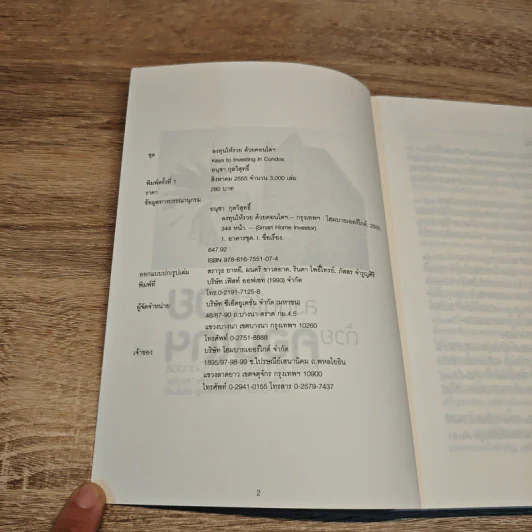 ชุด ลงทุนให้รวย ด้วยคอนโดฯ
Keys to Investing in Condos
อนุชา กุลวิสุทธิ์
พิมพ์ครั้งที่ 1 สิงหาคม 2555 จำนวน 3,000 เล่ม
ราคา 280 บาท
ข้อมูลทางบรรณานุกรม
อนุชา กุลวิสุทธิ์
ลงทุนให้รวย ด้วยคอนโดฯ.-- กรุงเทพฯ : โฮมบายเออร์ไกด์, 2555.
344 หน้า. -- (Smart Home Investor).
1. อาคารชุด. I. ชื่อเรื่อง.
647.92
ISBN 978-616-7551-07-4
ออกแบบปก/รูปเล่ม ตราวุธ ยาหยี, มนตรี ขาวสอาด, รินดา โพธิ์ไทรย์, ภัสสร จำรูญศิริ
พิมพ์ที่ บริษัท เฟิสท์ ออฟเซ็ท (1993) จำกัด
โทร.0-2191-7125-8
ผู้จัดจำหน่าย บริษัท ซีเอ็ดยูเคชั่น จำกัด (มหาชน)
46/87-90 ถ.บางนา-ตราด กม.4.5
แขวงบางนา เขตบางนา กรุงเทพฯ 10260
โทรศัพท์ 0-2751-8888
เจ้าของ บริษัท โฮมบายเออร์ไกด์ จำกัด
1895/97-98-99 ซ.ไปรษณีย์เสนานิคม ถ.พหลโยธิน
แขวงลาดยาว เขตจตุจักร กรุงเทพฯ 10900
โทรศัพท์ 0-2941-0155 โทรสาร 0-2579-7437
2